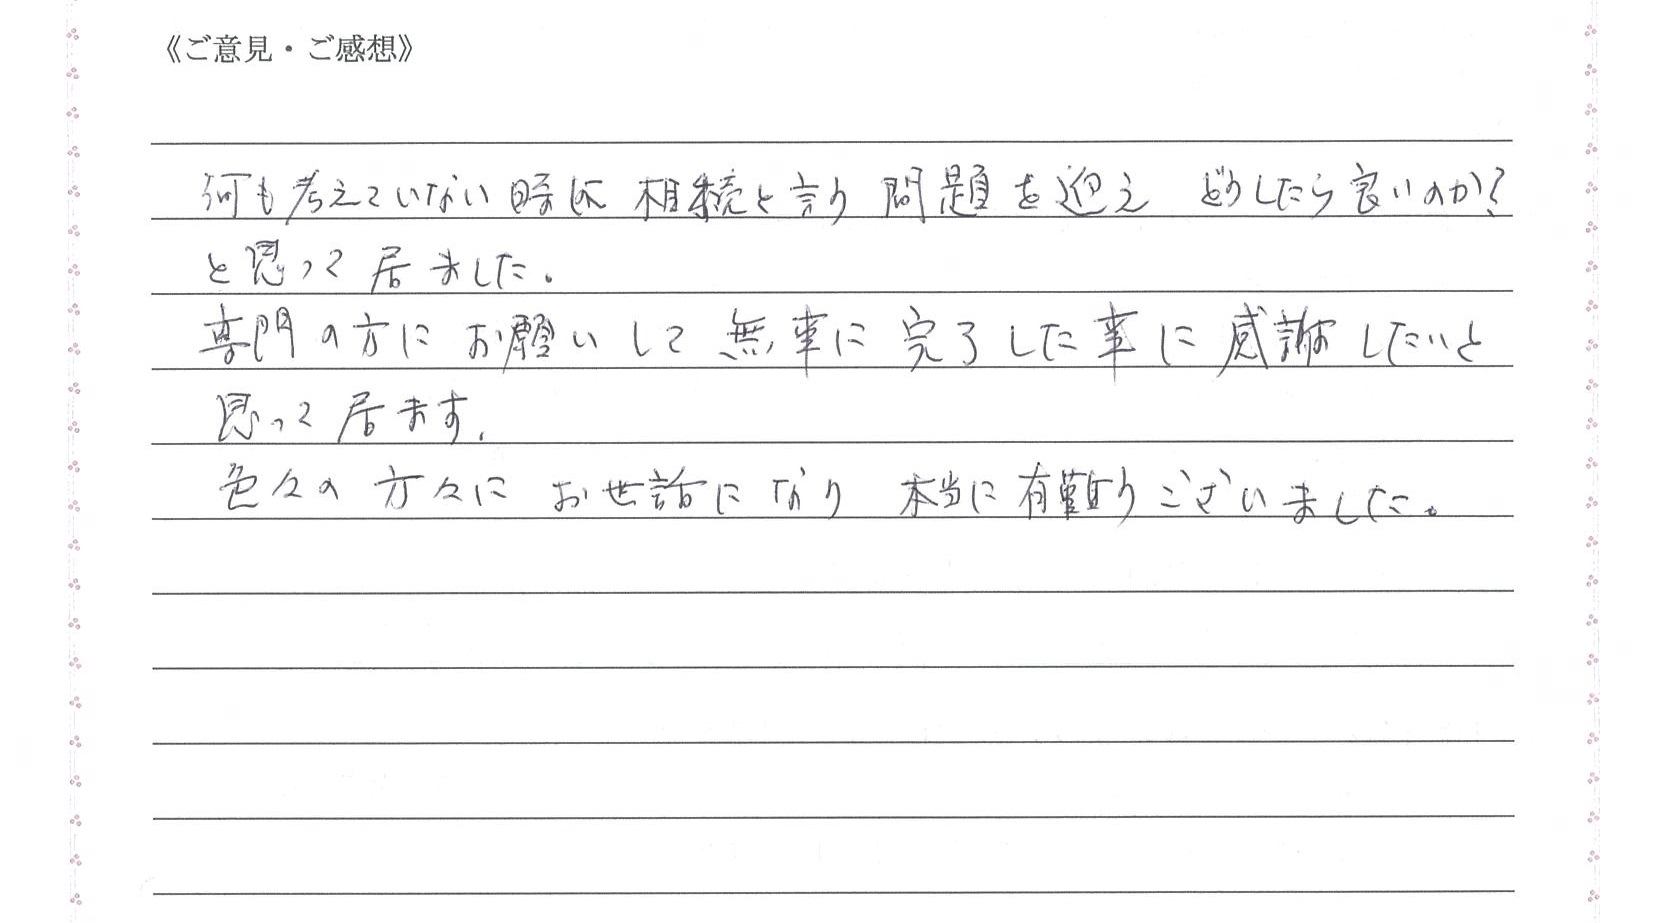 《ご意見・ご感想》
何も考えていない時に 相続と言う 問題を迎え どうしたら良いのか?
と思って居ました。
専門の方に お願いして 無事に 完了した事に 感謝したいと
思って居ます。
色々の 方々に お世話になり 本当に有難うございました。